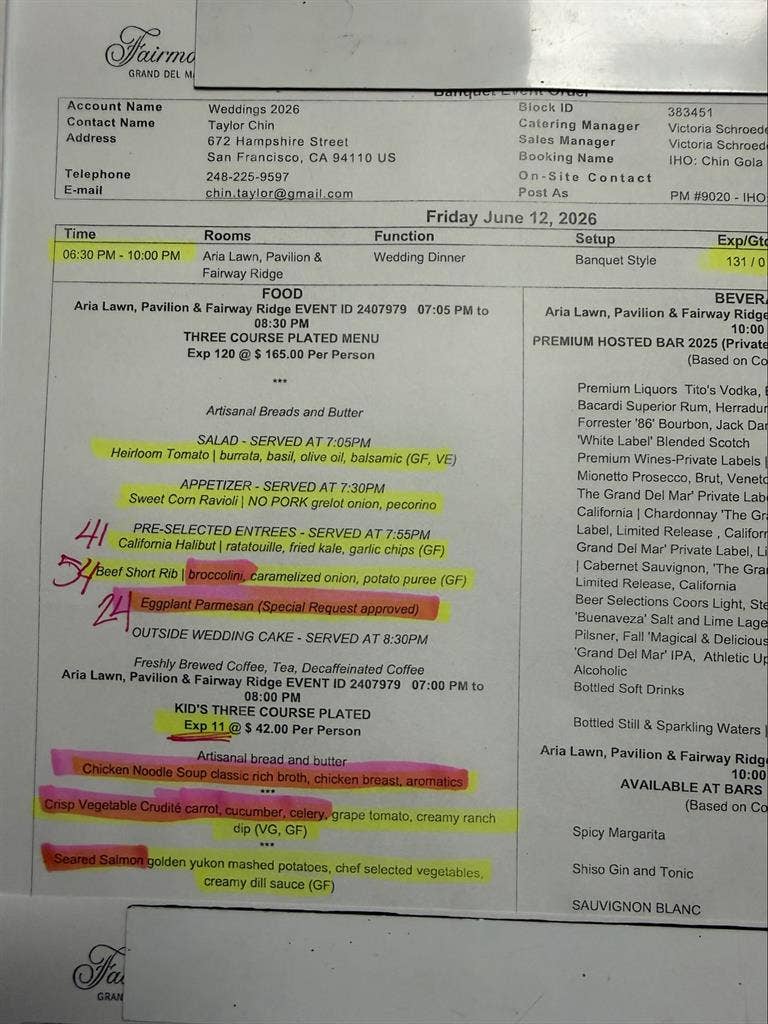 Fairmo
GRAND DEL MA
Banquet Event Order
Account Name Weddings 2026 Block ID 383451
Contact Name Taylor Chin Catering Manager Victoria Schroede
Address 672 Hampshire Street Sales Manager Victoria Schroede
San Francisco, CA 94110 US Booking Name IHO: Chin Gola
Telephone 248-225-9597 On-Site Contact
E-mail chin.taylor@gmail.com Post As PM #9020 - IHO:
Friday June 12, 2026
Time Rooms Function Setup Exp/Gtd
06:30 PM - 10:00 PM Aria Lawn, Pavilion & Wedding Dinner Banquet Style 131 / 0
Fairway Ridge
FOOD
Aria Lawn, Pavilion & Fairway Ridge EVENT ID 2407979 07:05 PM to
08:30 PM
THREE COURSE PLATED MENU
Exp 120 @ $ 165.00 Per Person
***
Artisanal Breads and Butter
SALAD - SERVED AT 7:05PM
Heirloom Tomato | burrata, basil, olive oil, balsamic (GF, VE)
APPETIZER - SERVED AT 7:30PM
Sweet Corn Ravioli | NO PORK grelot onion, pecorino
PRE-SELECTED ENTREES - SERVED AT 7:55PM
41 California Halibut | ratatouille, fried kale, garlic chips (GF)
54 Beef Short Rib | broccolini, caramelized onion, potato puree (GF)
24 Eggplant Parmesan (Special Request approved)
OUTSIDE WEDDING CAKE - SERVED AT 8:30PM
Freshly Brewed Coffee, Tea, Decaffeinated Coffee
Aria Lawn, Pavilion & Fairway Ridge EVENT ID 2407979 07:00 PM to
08:00 PM
KID'S THREE COURSE PLATED
Exp 11 @ $ 42.00 Per Person
Artisanal bread and butter
Chicken Noodle Soup classic rich broth, chicken breast, aromatics
***
Crisp Vegetable Crudité carrot, cucumber, celery, grape tomato, creamy ranch
dip (VG, GF)
***
Seared Salmon golden yukon mashed potatoes, chef selected vegetables,
creamy dill sauce (GF)
BEVERA
Aria Lawn, Pavilion & Fairway Ridge
10:00
PREMIUM HOSTED BAR 2025 (Private
(Based on Co
Premium Liquors Tito's Vodka, B
Bacardi Superior Rum, Herradur
Forrester '86' Bourbon, Jack Dan
'White Label' Blended Scotch
Premium Wines-Private Labels |
Mionetto Prosecco, Brut, Veneto
The Grand Del Mar' Private Labe
California | Chardonnay 'The Gra
Label, Limited Release , Californ
Grand Del Mar' Private Label, Li
| Cabernet Sauvignon, 'The Gran
Limited Release, California
Beer Selections Coors Light, Ste
'Buenaveza' Salt and Lime Lage
Pilsner, Fall 'Magical & Delicious
'Grand Del Mar' IPA, Athletic Up
Alcoholic
Bottled Soft Drinks
Bottled Still & Sparkling Waters |
Aria Lawn, Pavilion & Fairway Ridge
10:00
AVAILABLE AT BARS
(Based on Co
Spicy Margarita
Shiso Gin and Tonic
SAUVIGNON BLANC
Fai
GRAN